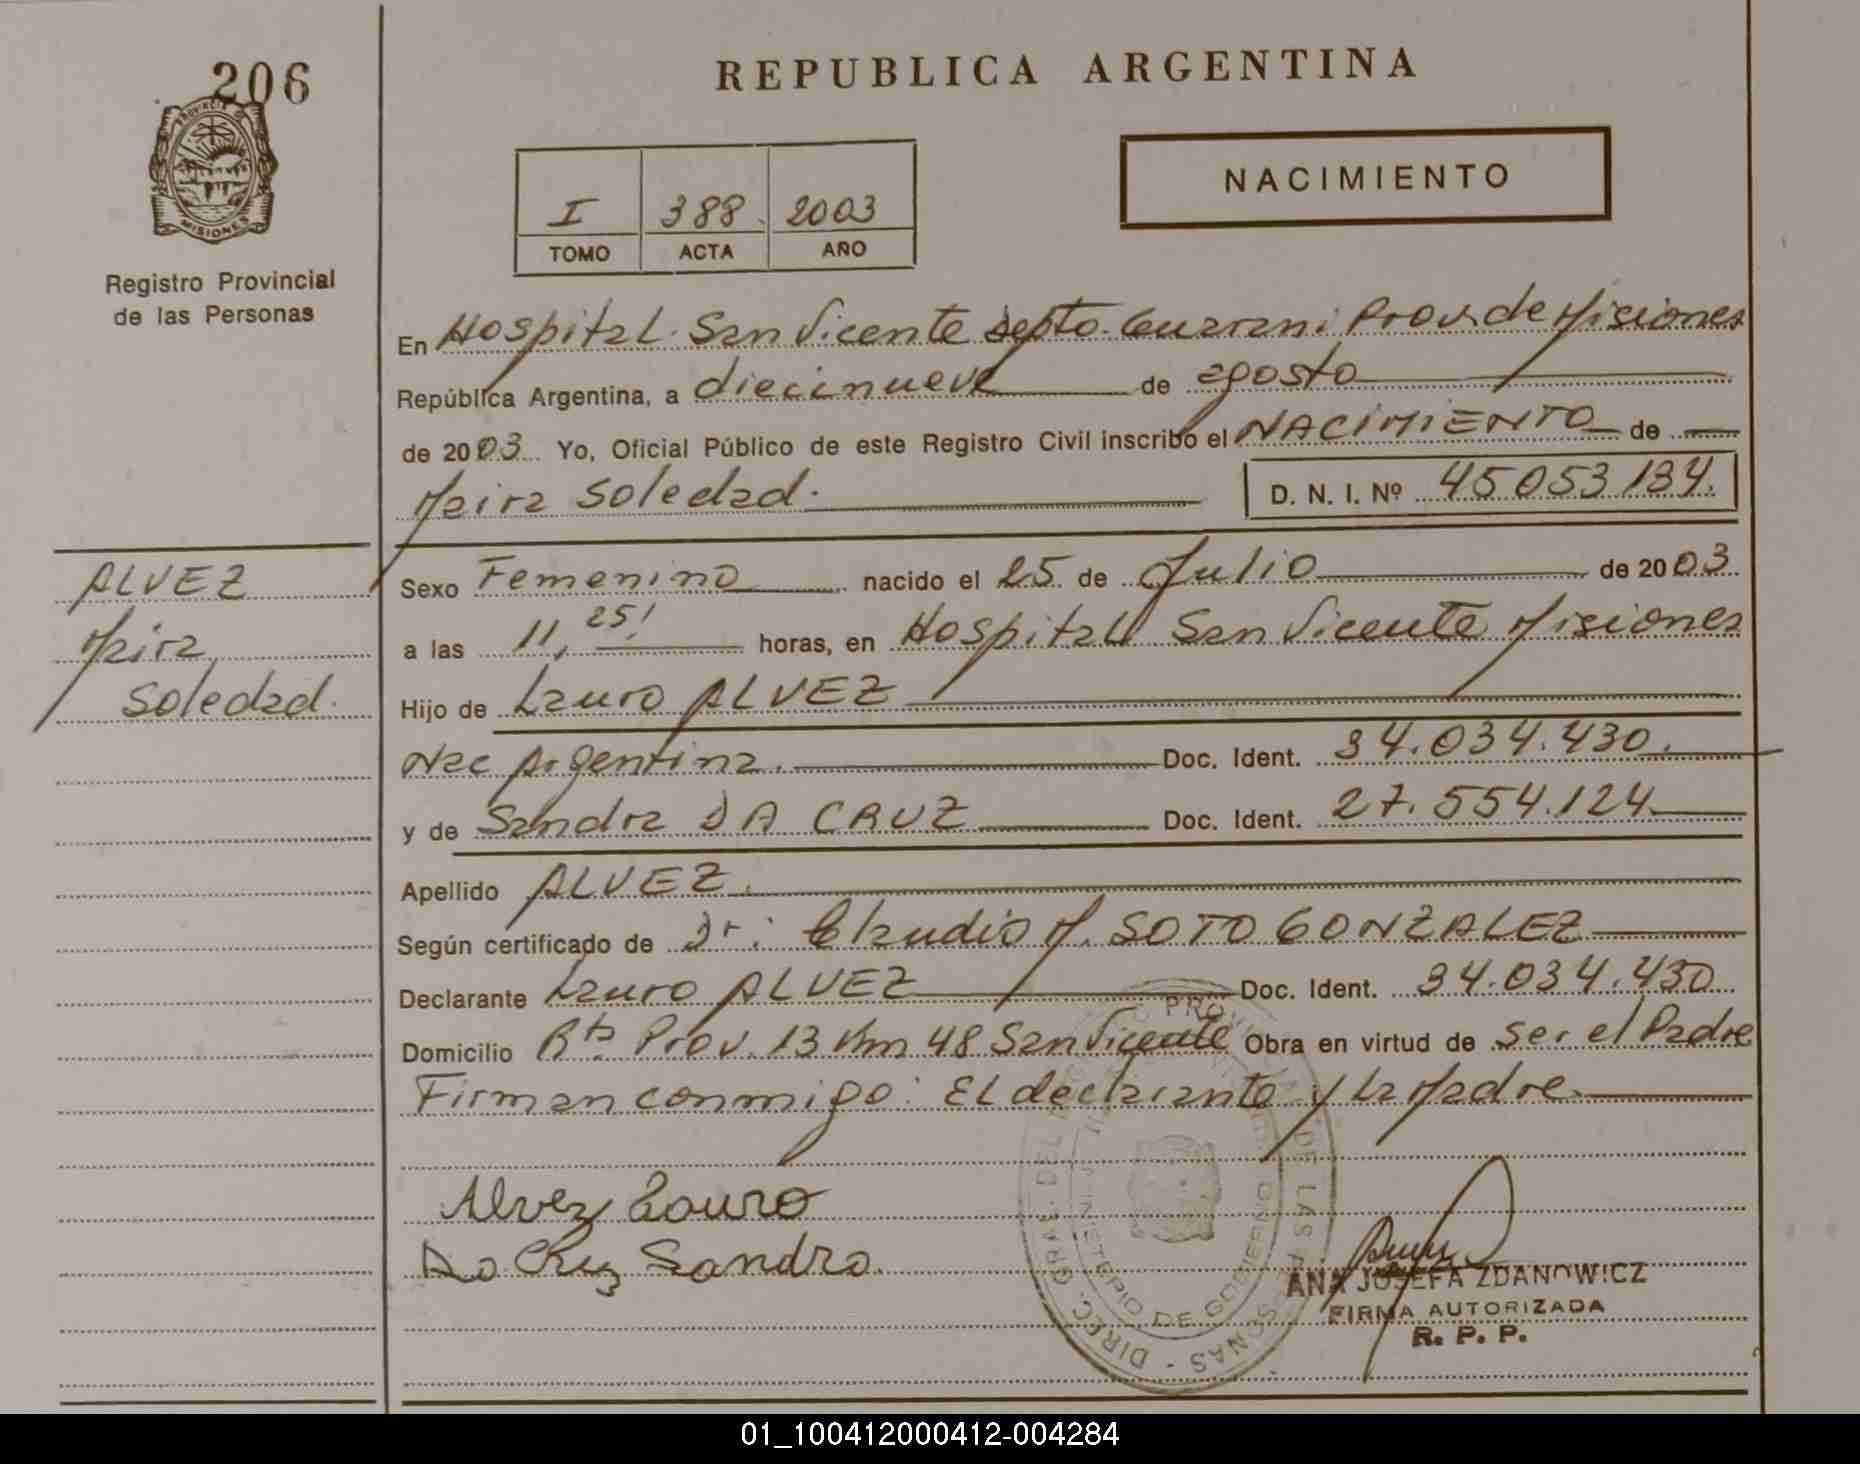 206
PROVINCIA DE
MISIONES
Registro Provincial
de las Personas
REPUBLICA ARGENTINA
I 388 2003
TOMO ACTA AÑO
NACIMIENTO
En Hospital San Vicente Depto. Guarani Prov. de Misiones
República Argentina, a diecinueve de agosto
de 2003 Yo, Oficial Público de este Registro Civil inscribo el NACIMIENTO de
Maira Soledad.
D. N. I. Nº 45053184.
ALVEZ
Maira
Soledad.
Sexo Femenino nacido el 25 de Julio de 2003
a las 11, 25! horas, en Hospital San Vicente Misiones
Hijo de Lauro ALVEZ
Nac Argentina. Doc. Ident. 34.034.430.
y de Sandra DA CRUZ Doc. Ident. 27.554.124
Apellido ALVEZ.
Según certificado de Dr. Claudio M. SOTO GONZALEZ
Declarante Lauro ALVEZ Doc. Ident. 34.034.430
Domicilio Rta Prov. 13 Km 48 San Vicente Obra en virtud de Ser el Padre
Firman conmigo: El declarante y La Madre.
Alvez Lauro
Da Cruz Sandra.
DIREC. GRAL. DEL PROVINCIAL DE LAS PERSONAS
MINISTERIO DE GOBIERNO
ANA JOSEFA ZDANOWICZ
FIRMA AUTORIZADA
R. P. P.
01_100412000412-004284